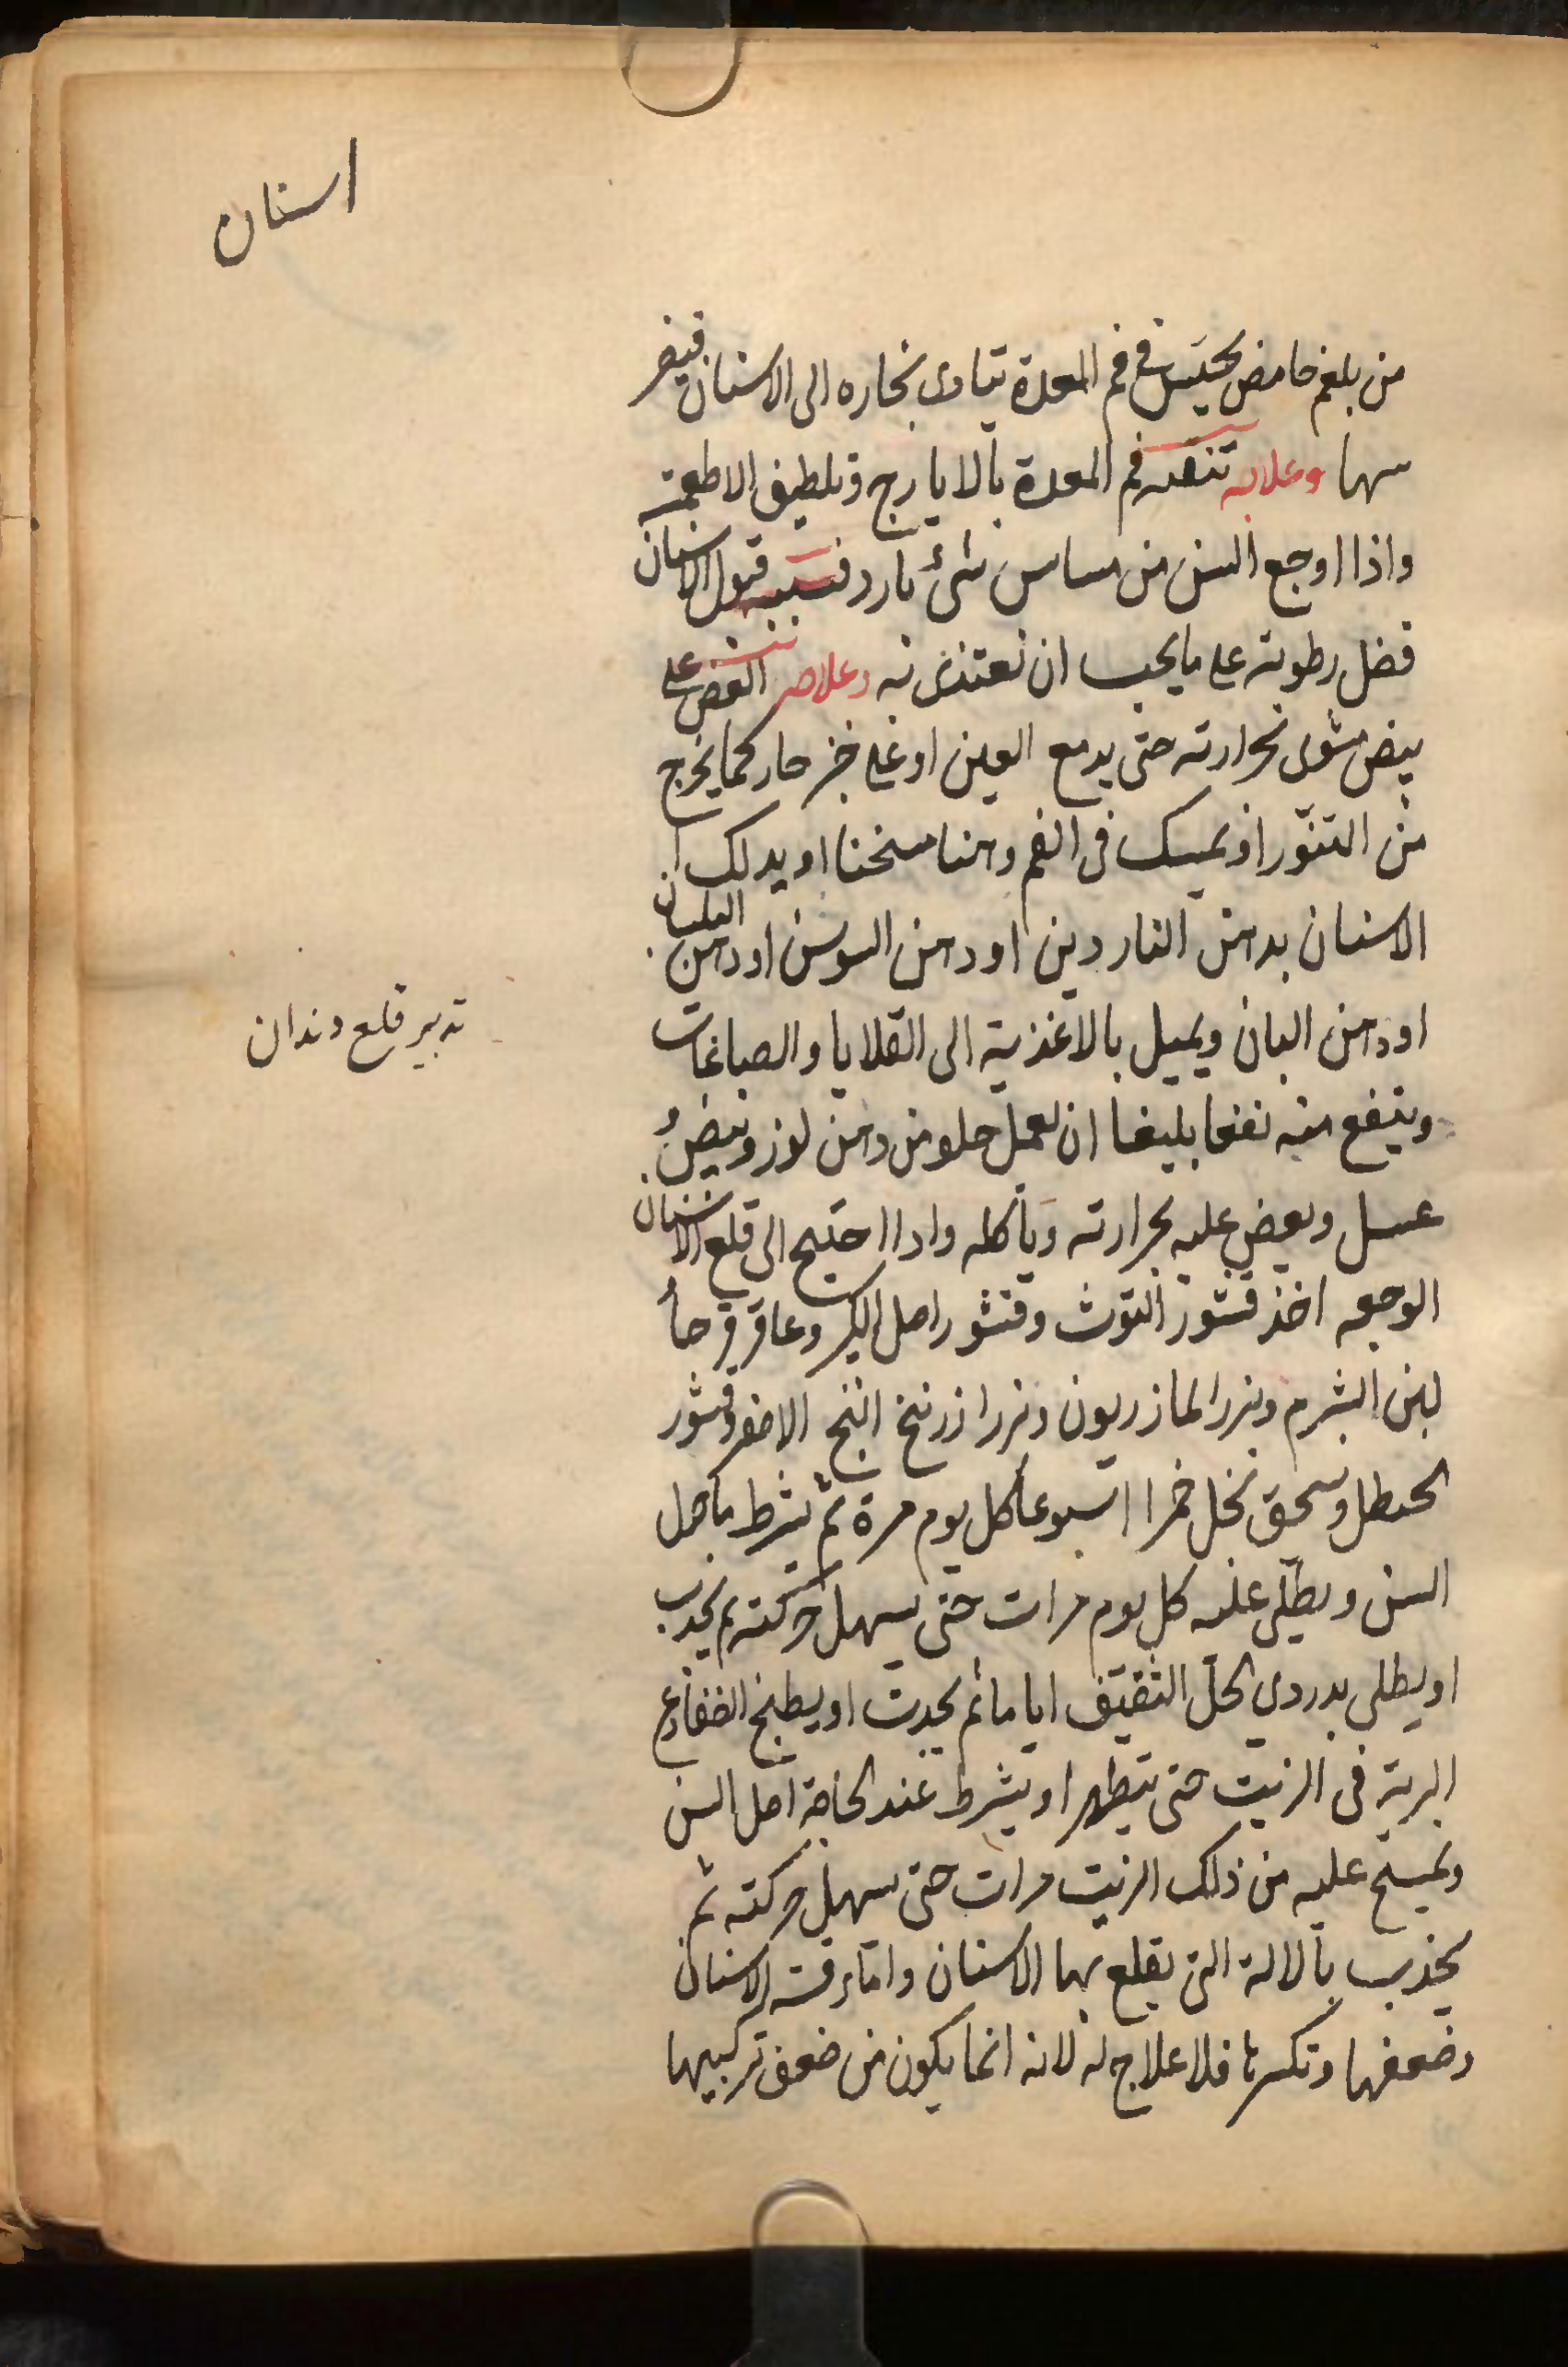 اسنان
من بلغم حامض يحتبس في فم المعدة يتادى بخاره الى الاسنان فيضر
سها وعلاجه تنقيه فم المعدة بالايارج وتلطيف الاطعمة
واذا اوجع السن من مساس شئ بارد فسببه قبول الاسنان
فضل رطوبته على ما يجب ان تغتذى به وعلاجه العض على
بيض مشوى بحرارته حتى يدمع العين او على خبز حار كما يخرج
من التنّور او يمسك فى الفم دهنا مسخنا او يدلك
الاسنان بدهن الناردين او دهن السوسن او دهن البلسان
او دهن البان ويميل بالاغذية الى القلايا والصباغات
وينفع منه نفعا بليغا ان يعمل حلو من دهن لوز وبيض
عسل ويعض عليه بحرارته وياكله واذا احتيج الى قلع الاسنان
تدبير قلع دندان
الوجعه اخذ قشور التوث وقشور اصل الكبر وعاقر قرحا
لبن الشبرم وبزر المازريون وبزر ازرنيخ الاصفر وقشور
الحنظل وسحق بخل خمرا اسبوعا كل يوم مرة ثم يشرط ما حول
السن ويطلى عليه كل يوم مرات حتى يسهل حركته ثم يجذب
او يطلى بدردي الخل الثقيف اياما ثم يجذب او يطبخ الضفادع
البرية فى الزيت حتى يتطهر او يشرط عند الحاجة اصل السن
ويمسح عليه من ذلك الزيت مرات حتى يسهل حركته ثم
يجذب بالالة التى يقلع بها الاسنان واما رقة الاسنان
وضعفها وتكسرها فلا علاج له لانه انما يكون من ضعف تركيبها